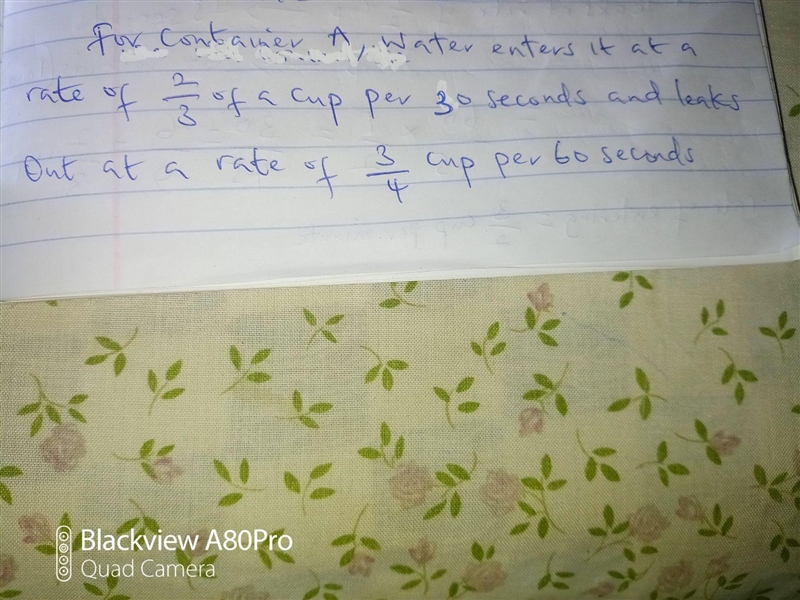 For Container A, Water enters it at a
rate of 2/3 of a cup per 30 seconds and leaks
Out at a rate of 3/4 cup per 60 seconds
Blackview A80Pro
Quad Camera